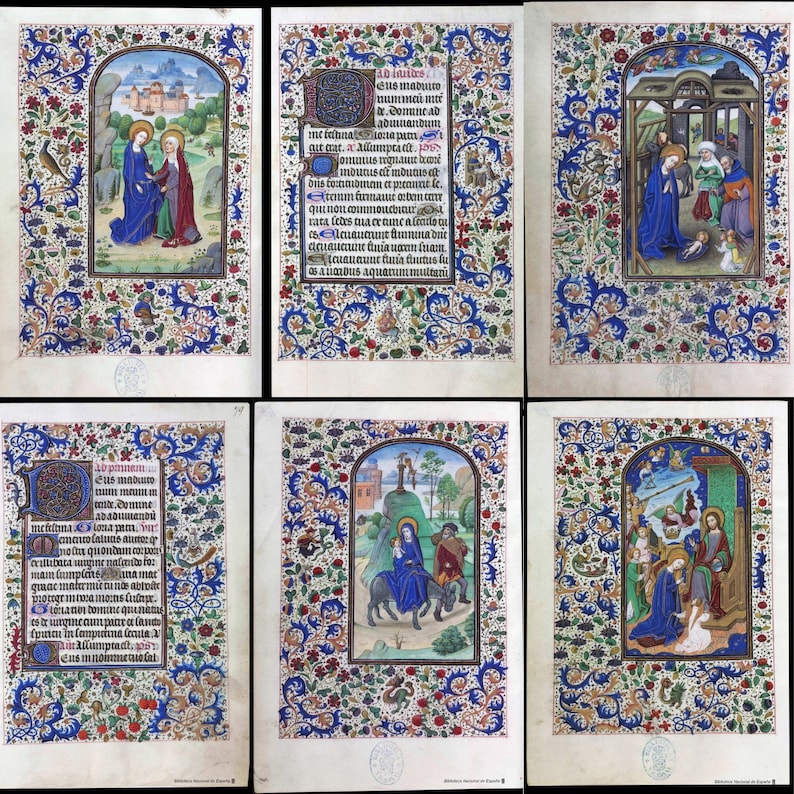 ad laudes
Deus in adiuto
rium meum inte
de. Domine ad
adiuuandum
me festina Gloria patri Si
cut erat. a Assumpta est. ps
Dominus regnauit decore
indutus est indutus est
dns fortitudinem et precinxit se.
Etenim firmauit orbem terre
qui non commouebitur Pa
rata sedes tua ex tunc a seculo tu es
Eleuauerunt flumina dne
eleuauerunt flumina uocem suam
Eleuauerunt flumina fluctus su
os a uocibus aquarum multarū
ad primam
Deus in adiuto
rium meum in
tende. Domine
ad adiuuandū
me festina. Gloria patri.
Memento salutis auctor q
nostri quondam corporis
ex illibata uirgine nascendo for
mam sumpseris Maria mat
gracie mater mie tu nos ab hoste
protege in hora mortis suscipe
Gloria tibi domine qui natus
es de uirgine cum patre et sancto
spiritu in sempiterna secula. A
Assumpta est. ps
Deus in nomine tuo sal
Biblioteca Nacional de España
Biblioteca Nacional de España
Biblioteca Nacional de España